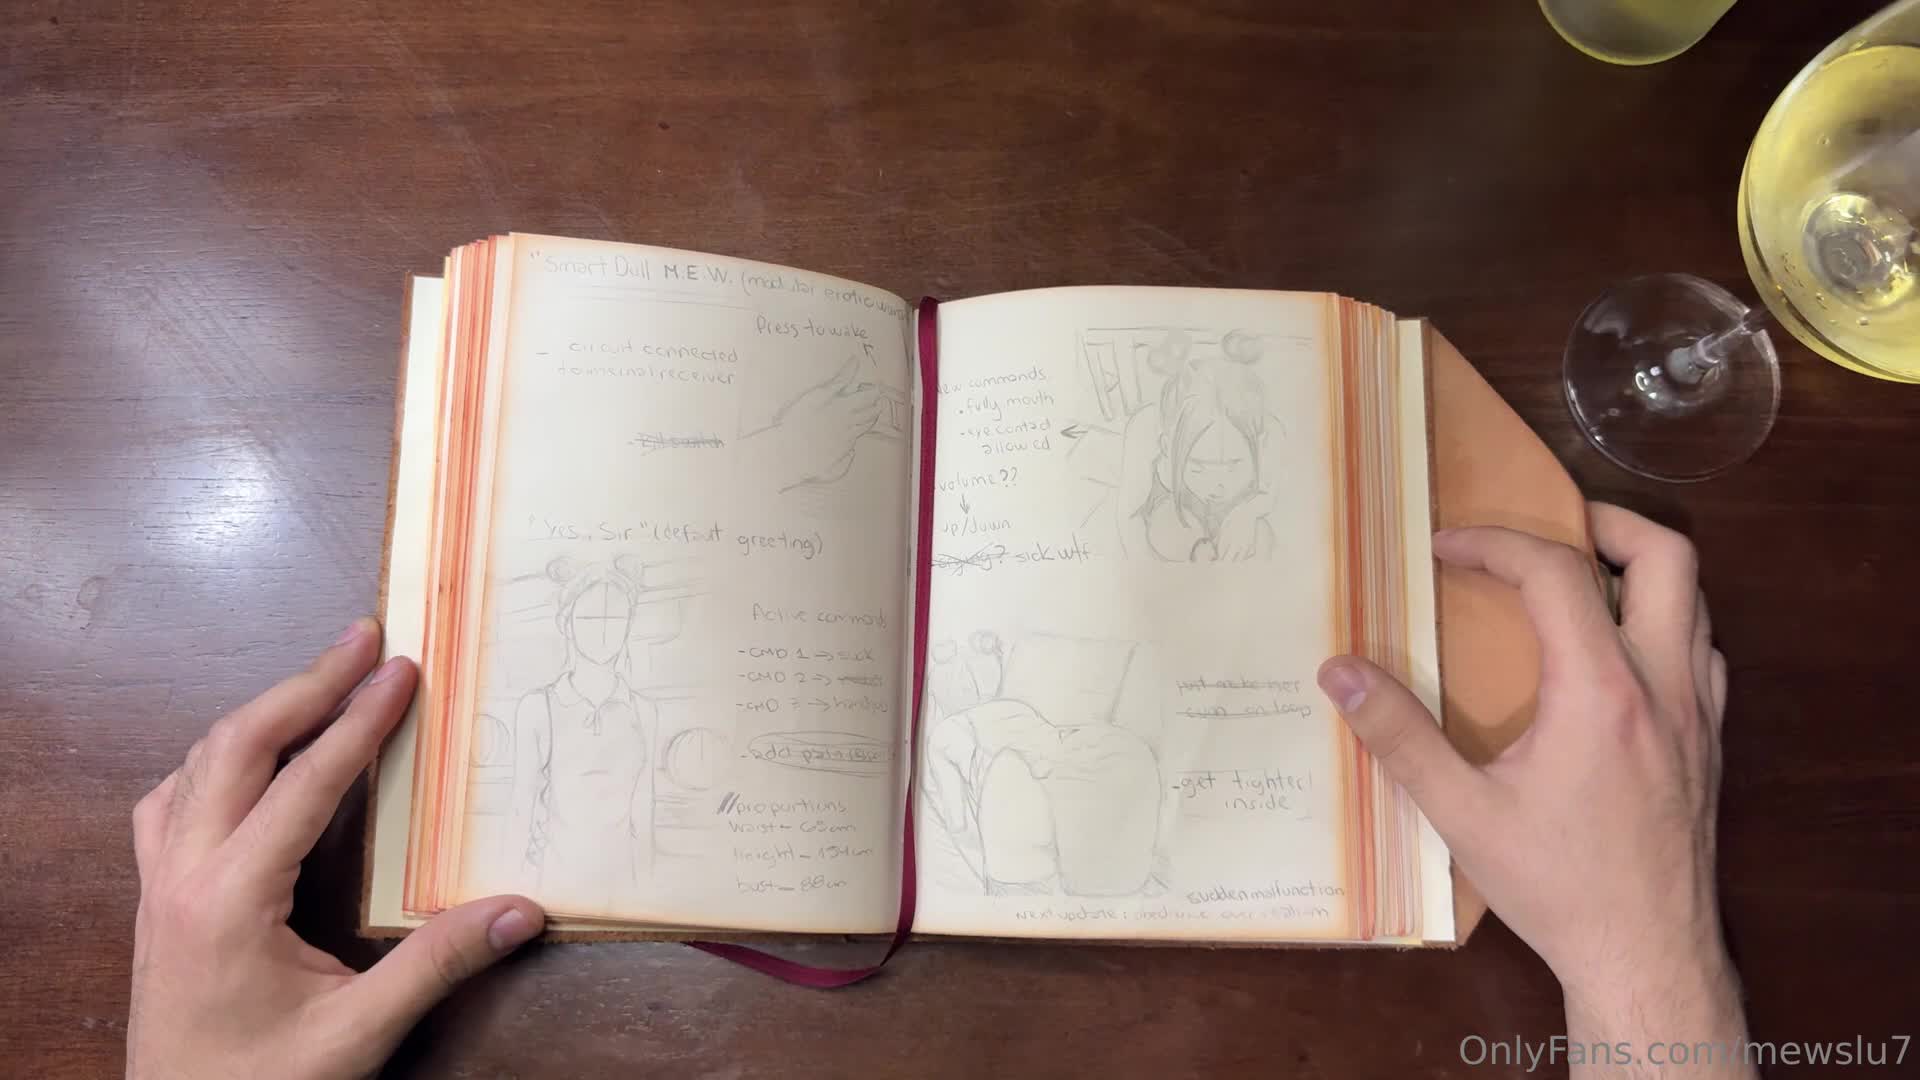 "Smart Doll M.E.W. (mod. for erotic
Press to wake
- circuit connected
to internal receiver
"Yes, Sir" (default greeting)
Active
- CMD 1 → suck
- CMD 2 →
- CMD 3 →
- add pain
// proportions
waist - 65cm
height - 154cm
bust - 88cm
New commands
. fully mouth
- eye contact
allowed
volume??
up/down
sick wtf
just make her
cum on loop
- get tighter
inside
sudden malfunction
Next update: obedience over realism
OnlyFans.com/mewslu7